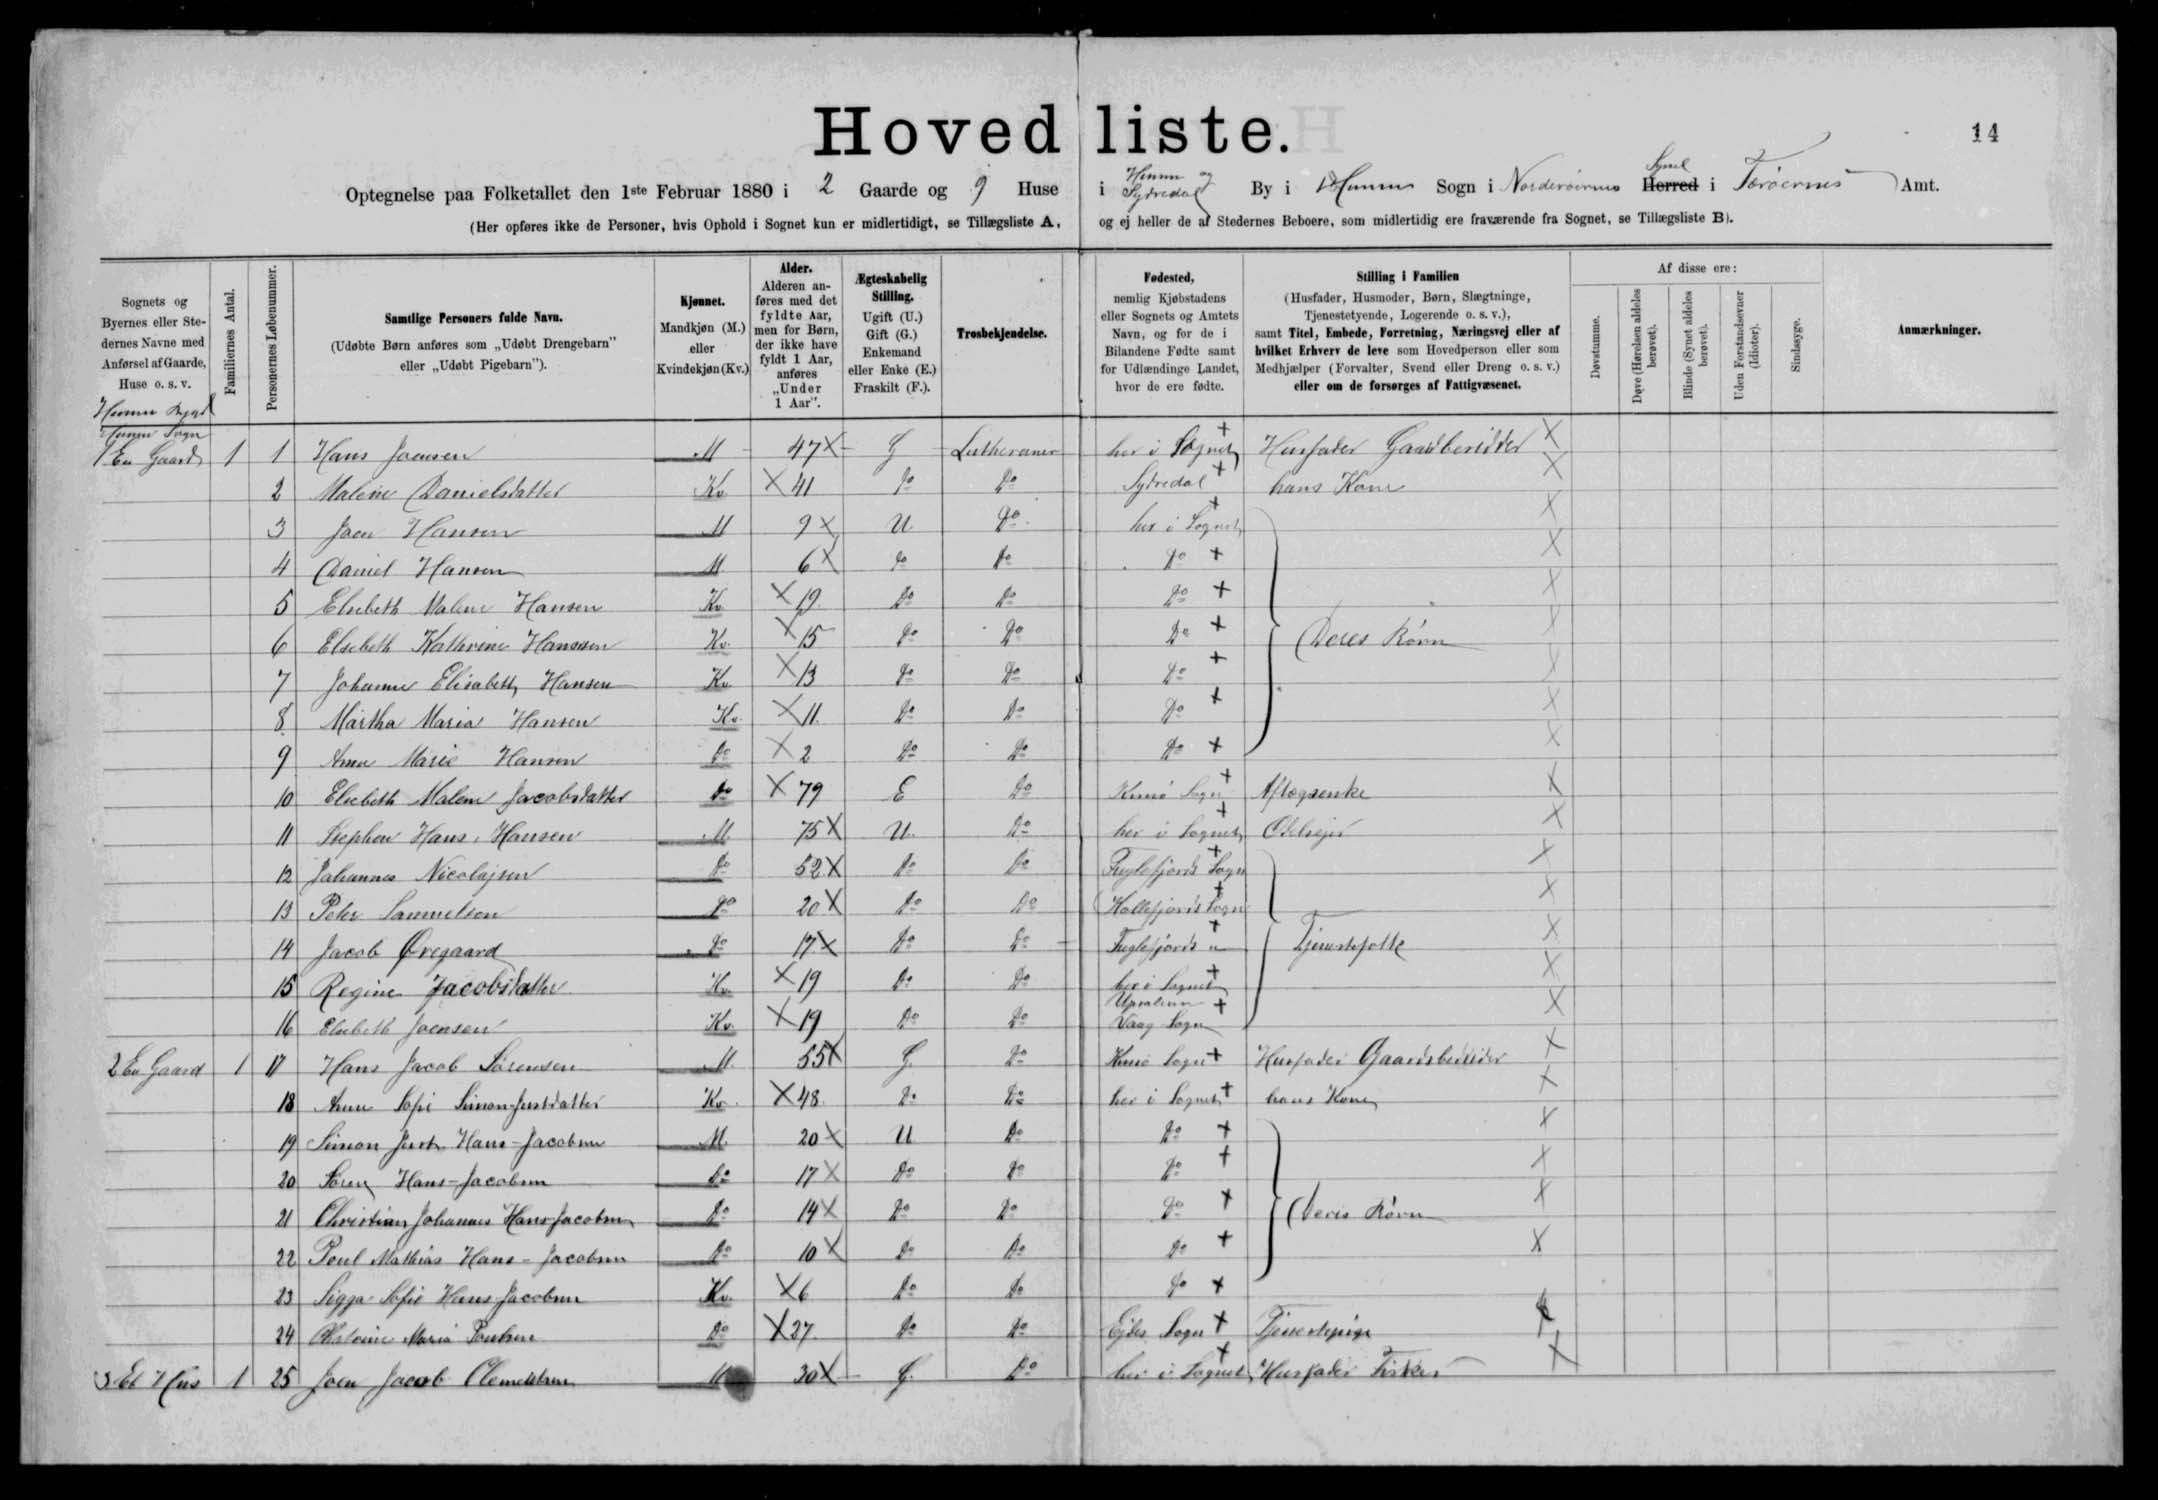 Hovedliste.
14
Optegnelse paa Folketallet den 1ste Februar 1880 i 2 Gaarde og 9 Huse i Husum og Sydredal By i Husum Sogn i Norderöernes Syssel Herred i Færöernes Amt.
(Her opføres ikke de Personer, hvis Ophold i Sognet kun er midlertidigt, se Tillægsliste A, og ej heller de af Stedernes Beboere, som midlertidig ere fraværende fra Sognet, se Tillægsliste B).
Sognets og Byernes eller Stedernes Navne med Anførsel af Gaarde, Huse o. s. v.
Familiernes Antal.
Personernes Løbenummer.
Samtlige Personers fulde Navn. (Udøbte Børn anføres som „Udøbt Drengebarn" eller „Udøbt Pigebarn").
Kjønnet. Mandkjøn (M.) eller Kvindekjøn (Kv.)
Alder. Alderen anføres med det fyldte Aar, men for Børn, der ikke have fyldt 1 Aar, anføres „Under 1 Aar".
Ægteskabelig Stilling. Ugift (U.) Gift (G.) Enkemand eller Enke (E.) Fraskilt (F.).
Trosbekjendelse.
Fødested, nemlig Kjøbstadens eller Sognets og Amtets Navn, og for de i Bilandene Fødte samt for Udlændinge Landet, hvor de ere fødte.
Stilling i Familien (Husfader, Husmoder, Børn, Slægtninge, Tjenestetyende, Logerende o. s. v.), samt Titel, Embede, Forretning, Næringsvej eller af hvilket Erhverv de leve som Hovedperson eller som Medhjælper (Forvalter, Svend eller Dreng o. s. v.) eller om de forsørges af Fattigvæsenet.
Af disse ere:
Døvstumme.
Døve (Hørelsen aldeles berøvet).
Blinde (Synet aldeles berøvet).
Uden Forstandsevner (Idioter).
Sindssyge.
Anmærkninger.
Husum Bygd
Husum Sogn
1 En Gaard 1 1 Hans Joensen M 47 X G Lutheraner her i Sognet + Husfader Gaardbesidder X
2 Malene Danielsdatter Kv X 41 Do Do Sydredal + hans Kone X
3 Joen Hansen M 9 X U Do her i Sognet + X
4 Daniel Hansen M 6 X Do Do Do + X
5 Elsebeth Malene Hansen Kv X 19 Do Do Do + X
6 Elsebeth Kathrine Hansen Kv. X 15 Do Do Do + Deres Börn X
7 Johanne Elisabeth Hansen Kv. X 13 Do Do Do + X
8 Martha Maria Hansen Kv. X 11 Do Do Do + X
9 Anna Marie Hansen Do X 2 Do Do Do + X
10 Elsebeth Malene Jacobsdatter Do X 79 E Do Kunö Sogn + Aftægsenke X
11 Stephan Hans Hansen M 75 X U. Do her i Sognet + Odelsejer X
12 Johannes Nicolajsen Do 52 X Do Do Fuglefjords Sogn + X
13 Peter Samuelsen Do 20 X Do Do Sogn + X
14 Jacob Øregaard Do 17 X Do Do Fuglefjords " + Tjenestefolk X
15 Regine Jacobsdatter Kv. X 19 Do Do her i Sognet + X
16 Elsebeth Joensen Kv. X 19 Do Do Vaag Sogn + X
2 En Gaard 1 17 Hans Jacob Sörensen M. 55 X G. Do Kunö Sogn + Husfader Gaardsbesidder X
18 Anne Sofie Simon-Justdatter Kv. X 48 Do Do her i Sognet + hans Kone X
19 Simon Just Hans-Jacobsen M. 20 X U Do Do + X
20 Sören Hans-Jacobsen Do 17 X Do Do Do + X
21 Christian Johannes Hans Jacobsen Do 14 X Do Do Do + Deres Börn X
22 Poul Mathias Hans-Jacobsen Do 10 X Do Do Do + X
23 Sigga Sofie Hans Jacobsen Kv. X 6 Do Do Do +
24 Maria Poulsen Do X 27 Do Do Ejdes Sogn + Tjenestepige X
3 Et Hus 1 25 Joen Jacob Clementsen M 30 X G. Do her i Sognet + Husfader Fisker X